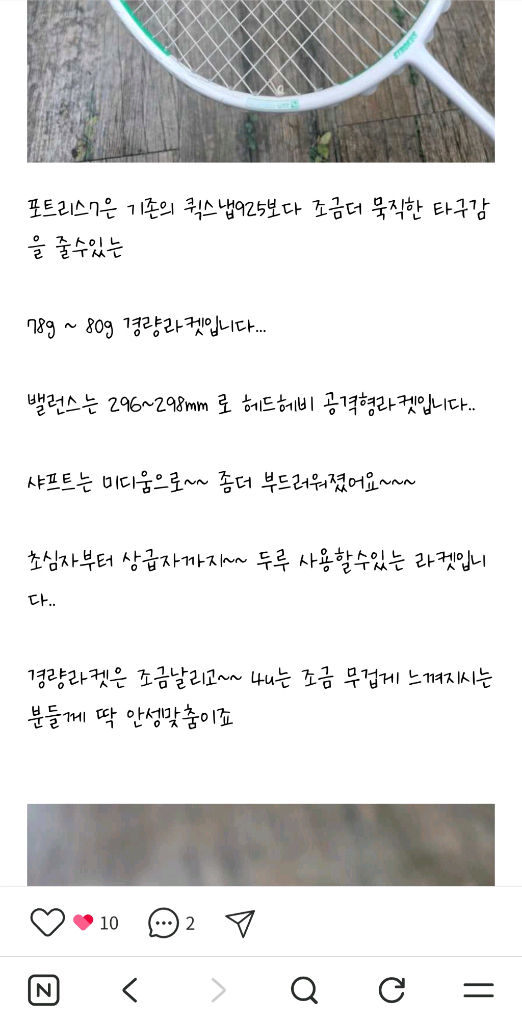 STROKUS
포트리스7은 기존의 퀵스냅925보다 조금더 묵직한 타구감
을 줄수있는
78g ~ 80g 경량라켓입니다...
밸런스는 296~298mm 로 헤드헤비 공격형라켓입니다..
샤프트는 미디움으로~~ 좀더 부드러워졌어요~~~
초심자부터 상급자까지~~ 두루 사용할수있는 라켓입니
다..
경량라켓은 조금날리고~~ 4u는 조금 무겁게 느껴지시는
분들께 딱 안성맞춤이죠
10
2
N